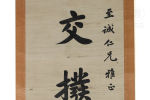 至誠仁兄雅正
交
撲